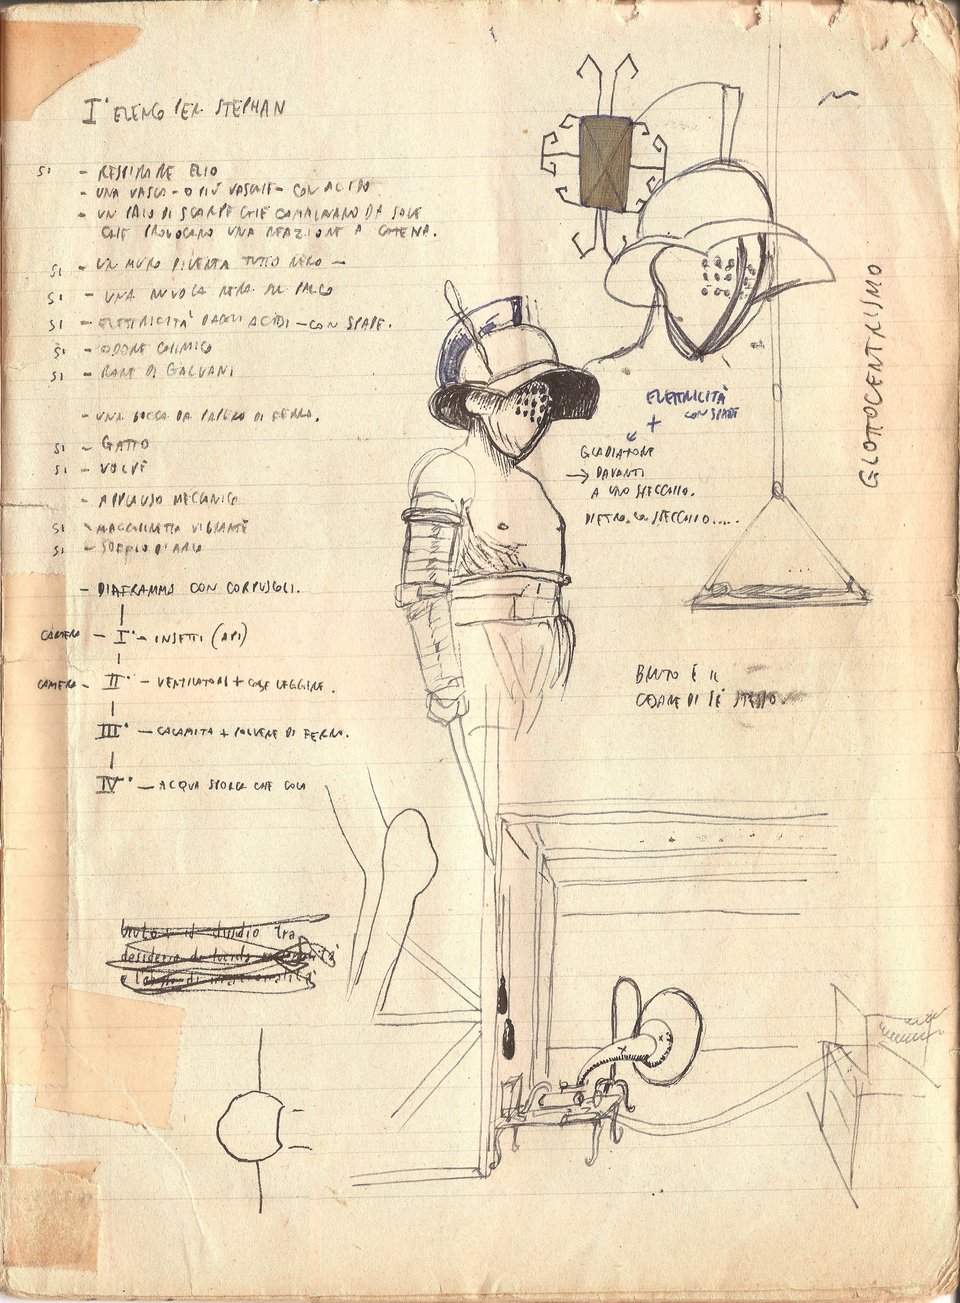 I° ELENCO PER STEPHAN
SI - RESPIRARE ELIO
- UNA VASCA - O PIÙ VASCHE - CON ACIDO
- UN PAIO DI SCARPE CHE CAMMINANO DA SOLE
CHE PROVOCANO UNA REAZIONE A CATENA.
SI - UN MURO DIVENTA TUTTO NERO -
SI - UNA NUVOLA NERA AL PALCO
SI - ELETTRICITÀ DAGLI ACIDI - CON SPADE.
SI - ODORE CHIMICO
SI - RANE DI GALVANI
- UNA BOCCA DA PAPERO DI FERRO.
SI - GATTO
SI - VOLPE
- APPLAUSO MECCANICO
SI - MACCHINETTA VIBRANTE
SI - SOFFIO D'ARIA
- DIAFRAMMA CON CORPUSCOLI.
CAMERA - I° - INSETTI (API)
CAMERA - II° - VENTILATORI + COSE LEGGERE.
III° - CALAMITA + POLVERE DI FERRO.
IV° - ACQUA SPORCA CHE COLA
ELETTRICITÀ
CON SPADE
+
GLADIATORE
→ DAVANTI
A UNO SPECCHIO.
DIETRO LO SPECCHIO.....
GLOTTOCENTRISMO
BRUTO È IL
CESARE DI SÉ STESSO.
bruto è il dividio tra
desiderio di lucida
e